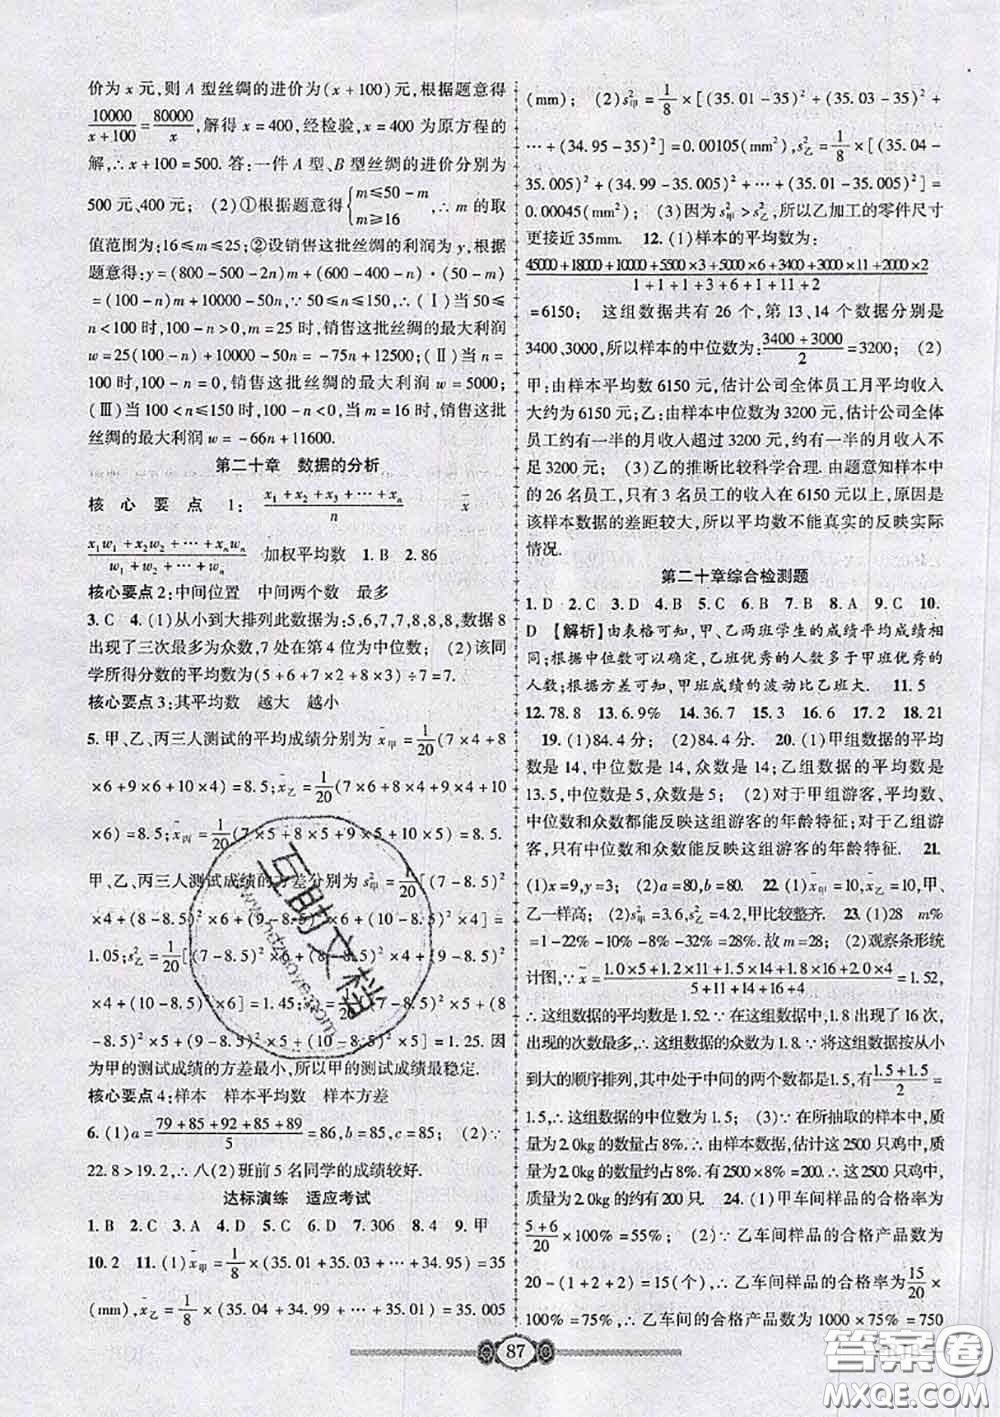 价为 x 元,则 A 型丝绸的进价为(x+100)元,根据题意得
10000/(x+100)=80000/x,解得 x=400,经检验,x=400 为原方程的
解,∴x+100=500. 答:一件 A 型、B 型丝绸的进价分别为
500 元、400 元; (2)①根据题意得{m≤50-m m≥16,∴m 的取
值范围为:16≤m≤25;②设销售这批丝绸的利润为 y,根据
题意得:y=(800-500-2n)m+(600-400-n)·(50-m)
=(100-n)m+10000-50n,∵50≤n≤150,∴(Ⅰ)当50≤
n<100 时,100-n>0,m=25 时,销售这批丝绸的最大利润
w=25(100-n)+10000-50n=-75n+12500;(Ⅱ)当 n=
100 时,100-n=0,销售这批丝绸的最大利润 w=5000;
(Ⅲ)当100<n≤150 时,100-n<0,当 m=16 时,销售这批
丝绸的最大利润 w=-66n+11600.
第二十章 数据的分析
核心要点 1: (x₁+x₂+x₃+…+xₙ)/n x̄
(x₁w₁+x₂w₂+…+xₙwₙ)/(w₁+w₂+…+wₙ) 加权平均数 1.B 2.86
核心要点2:中间位置 中间两个数 最多
3.C 4.(1)从小到大排列此数据为:5,6,7,7,8,8,8,数据 8
出现了三次最多为众数,7 处在第 4 位为中位数; (2)该同
学所得分数的平均数为(5+6+7×2+8×3)÷7=7.
核心要点3:其平均数 越大 越小
5.甲、乙、丙三人测试的平均成绩分别为 x̄甲=1/20(7×4+8
×6+9×6+10×4)=8.5;x̄乙=1/20(7×6+8×4+9×4+10
×6)=8.5;x̄丙=1/20(7×5+8×5+9×5+10×5)=8.5.
甲、乙、丙三人测试成绩的方差分别为 s²甲=1/20[(7-8.5)²
×4+(8-8.5)²×6+(9-8.5)²×6+(10-8.5)²×4]=
1.05;s²乙=1/20[(7-8.5)²×6+(8-8.5)²×4+(9-8.5)²
×4+(10-8.5)²×6]=1.45;s²丙=1/20[(7-8.5)²×5+(8
-8.5)²×5+(9-8.5)²×5+(10-8.5)²×5]=1.25. 因
为甲的测试成绩的方差最小,所以甲的测试成绩最稳定.
核心要点4:样本 样本平均数 样本方差
6.(1)a=(79+85+92+85+89)/5=86,b=85,c=85; (2)∵
22.8>19.2,∴八(2)班前 5 名同学的成绩较好.
达标演练 适应考试
1.B 2.C 3.A 4.D 5.C 6.D 7.306 8.4 9.甲
10.2 11.(1)x̄甲=1/8×(35.01+35.03+…+34.95)=35
(mm),x̄乙=1/8×(35.04+34.99+…+35.01)=35.005
(mm); (2)s²甲=1/8×[(35.01-35)²+(35.03-35)²+
…+(34.95-35)²]=0.00105(mm²),s²乙=1/8×[(35.04-
35.005)²+(34.99-35.005)²+…+(35.01-35.005)²]=
0.00045(mm²) (3)因为 s²甲>s²乙,所以乙加工的零件尺寸
更接近35mm. 12.(1)样本的平均数为:
(45000+18000+10000+5500×3+5000×6+3400+3000×11+2000×2)/(1+1+1+3+6+1+11+2)
=6150; 这组数据共有 26 个,第 13、14 个数据分别是
3400,3000,所以样本的中位数为:(3400+3000)/2=3200; (2)
甲:由样本平均数 6150 元,估计公司全体员工月平均收入
大约为 6150 元;乙:由样本中位数为 3200 元,估计公司全体
员工约有一半的月收入超过 3200 元,约有一半的月收入不足
3200 元; (3)乙的推断比较科学合理. 由题意知样本中
的 26 名员工,只有 3 名员工的收入在 6150 元以上,原因是
该样本数据的差距较大,所以平均数不能真实的反映实际
情况.
第二十章综合检测题
1.D 2.C 3.C 4.C 5.B 6.D 7.B 8.A 9.C 10.
D 【解析】由表格可知,甲、乙两班学生的成绩平均成绩相
同;根据中位数可以确定,乙班优秀的人数多于甲班优秀的
人数;根据方差可知,甲班成绩的波动比乙班大. 11.5
12.78.8 13.6.9% 14.36.7 15.3 16.6 17.2 18.21
19.(1)84.4分; (2)84.4分. 20.(1)甲组数据的平均
数是 14,中位数是 14,众数是 14;乙组数据的平均数是
13.5,中位数是 5,众数是 5; (2)对于甲组游客,平均数、
中位数和众数都能反映这组游客的年龄特征;对于乙组游
客,只有中位数和众数能反映这组游客的年龄特征. 21.
(1)x=9,y=3; (2)a=80,b=80. 22.(1)x̄甲=10,x̄乙=10,甲、
乙一样高; (2)s²甲=3.6,s²乙=4.2,甲比较整齐. 23.(1)28 m%
=1-22%-10%-8%-32%=28%.故 m=28; (2)观察条形统
计图,∵x̄=(1.0×5+1.2×11+1.5×14+1.8×16+2.0×4)/(5+11+14+16+4)=1.52,
∴这组数据的平均数是 1.52.∵在这组数据中,1.8 出现了 16 次,
出现的次数最多,∴这组数据的众数为 1.8.∵将这组数据按从小
到大的顺序排列,其中处于中间的两个数都是1.5,有(1.5+1.5)/2=
1.5,∴这组数据的中位数为 1.5; (3)∵在所抽取的样本中,质
量为2.0kg 的数量占8%.∴由样本数据,估计这 2500 只鸡中,质
量为2.0kg 的数量约占8%.有 2500×8%=200. ∴这 2500 只鸡中,
质量为2.0kg 的约有 200只. 24.(1)甲车间样品的合格率为
(5+6)/20×100%=55%; (2)∵乙车间样品的合格产品数为
20-(1+2+2)=15(个),∴乙车间样品的合格率为15/20×
100%=75%,∴乙车间的合格产品数为 1000×75%=750
87
互助文档
www.hdzuoye.com
答案圈
MXQE.COM